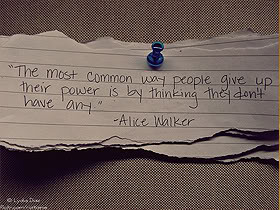 "The most common way people give up
their power is by thinking they don't
have any."
-Alice Walker
© Lydia Dias